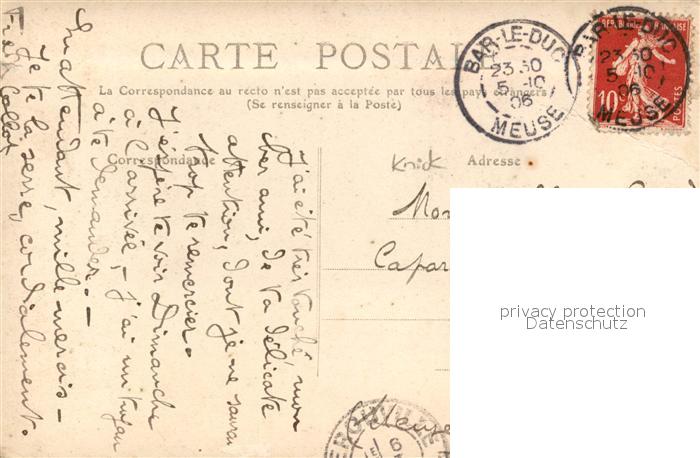 CARTE POSTALE
La Correspondance au recto n'est pas acceptée par tous les pays étrangers
(Se renseigner à la Poste)
Correspondance
Adresse
Knick
BAR-LE-DUC
23 30
5 - 10
06
MEUSE
BAR-LE-DUC
23 30
5 - 10
06
MEUSE
10c
POSTES
J'ai été très touché, mon
cher ami, de ta délicate
attention, dont je ne saurai
trop te remercier.
J'espère te voir Dimanche
à l'arrivée, - j'ai un tuyau
à te demander. -
En attendant, mille mercis -
Je te la serre, cordialement.
Capor
Meuse
privacy protection
Datenschutz